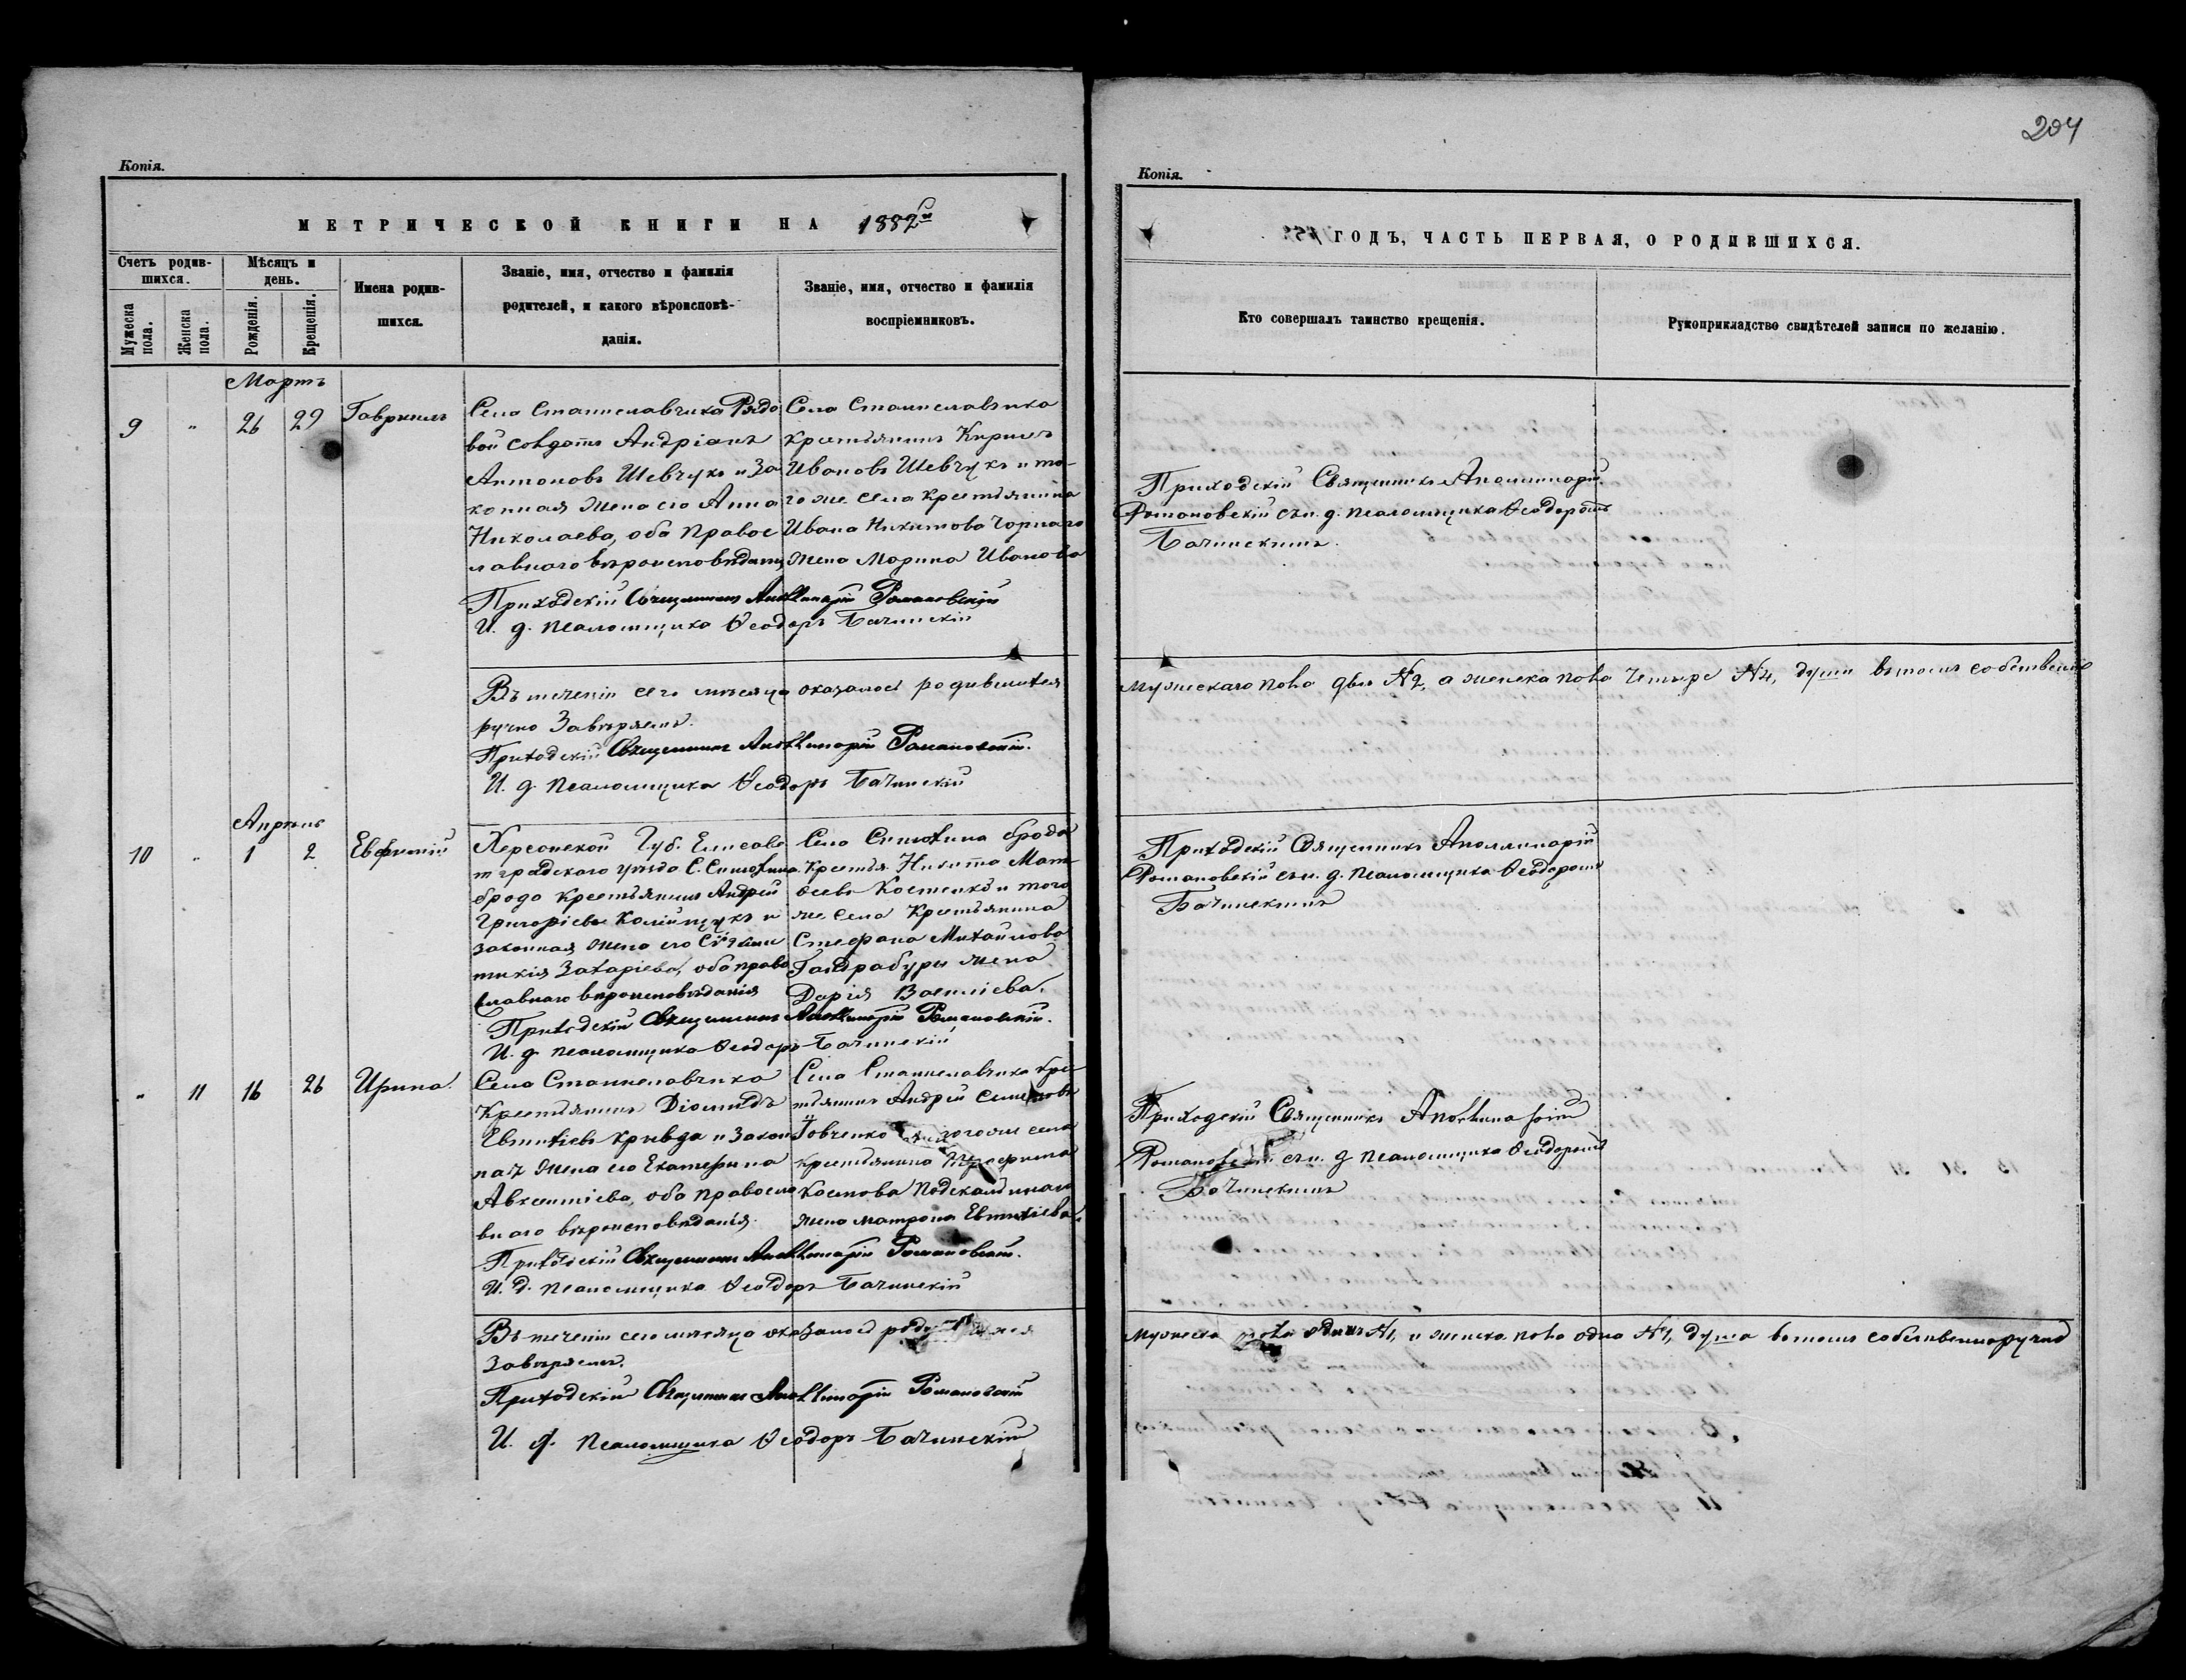 204
Копія.
МЕТРИЧЕСКОЙ КНИГИ НА 1882й
Счетъ родив-
шихся.
Мужеска пола.
Женска пола.
Мѣсяцъ и
день.
Рожденія.
Крещенія.
Имена родив-
шихся.
Званіе, имя, отчество и фамилія
родителей, и какого вѣроисповѣ-
данія.
Званіе, имя, отчество и фамилія
воспріемниковъ.
Мартъ
9 " 26 29 Гавріилъ
Села Станиславчика Рядо
вой солдатъ Андріанъ
Антоновъ Шевчукъ и За
конная жена его Анна
Николаева, оба Правос
лавнаго вѣроисповѣданія
Села Станиславчика
крестьянинъ Кирилъ
Ивановъ Шевчукъ и то-
го же села крестьянина
Ивана Никитова Чорнаго
жена Марина Иванова
Приходскій Священникъ Аполлинарій Романовскій
И. д. псаломщика Ѳеодоръ Бачинскій
Въ теченіи сего мѣсяца оказалось родившихся
ручно Завѣряемъ.
Приходскій Священникъ Аполлинарій Романовскій.
И. д. псаломщика Ѳеодоръ Бачинскій
Апрѣль
10 " 1 2 Евфимій
Херсонской Губ. Елисаве
тградскаго уѣзда С. Синюхина
брода Крестьянинъ Андрей
Григоріевъ и
законная жена его
Захаріева, оба право
славнаго вѣроисповѣданія
Села Синюхина брода
Крестья. Никита Мат-
ѳеевъ Костенко и того
же села Крестьянина
Стефана Михайлова
Гандрабуры жена
Дарія Василіева.
Приходскій Священникъ Аполлинарій Романовскій.
И. д. псаломщика Ѳеодоръ Бачинскій
" 11 16 26 Ирина.
Села Станиславчика
Крестьянинъ Діомидъ
Евтихіевъ Кривда и Закон
ная жена его Екатерина
Авксентіева, оба Правосла
внаго вѣроисповѣданія.
Села Станиславчика кре-
стьянинъ Андрей Семеновъ
Товченко и того же села
крестьянина Трофима
Костова
жена Матрона Евтихіева.
Приходскій Священникъ Аполлинарій Романовскій.
И. д. псаломщика Ѳеодоръ Бачинскій
Въ теченіи сего мѣсяца оказалось родившихся
Завѣряемъ.
Приходскій Священникъ Аполлинарій Романовскій
И. д. псаломщика Ѳеодоръ Бачинскій
Копія.
ГОДЪ, ЧАСТЬ ПЕРВАЯ, О РОДИВШИХСЯ.
Кто совершалъ таинство крещенія.
Рукоприкладство свидѣтелей записи по желанію.
Приходскій Священникъ Аполлинарій
Романовскій съ и. д. псаломщика Ѳеодоромъ
Бачинскимъ.
Мужескаго пола два №2, а женска пола четыре №4, души въ томъ собственно
Приходскій Священникъ Аполлинарій
Романовскій съ и. д. псаломщика Ѳеодоромъ
Бачинскимъ
Приходскій Священникъ Аполлинарій
Романовскій съ и. д. псаломщика Ѳеодоромъ
Бачинскимъ
Мужеска пола одинъ №1, и женска пола одна №1, душа въ томъ собственноручно